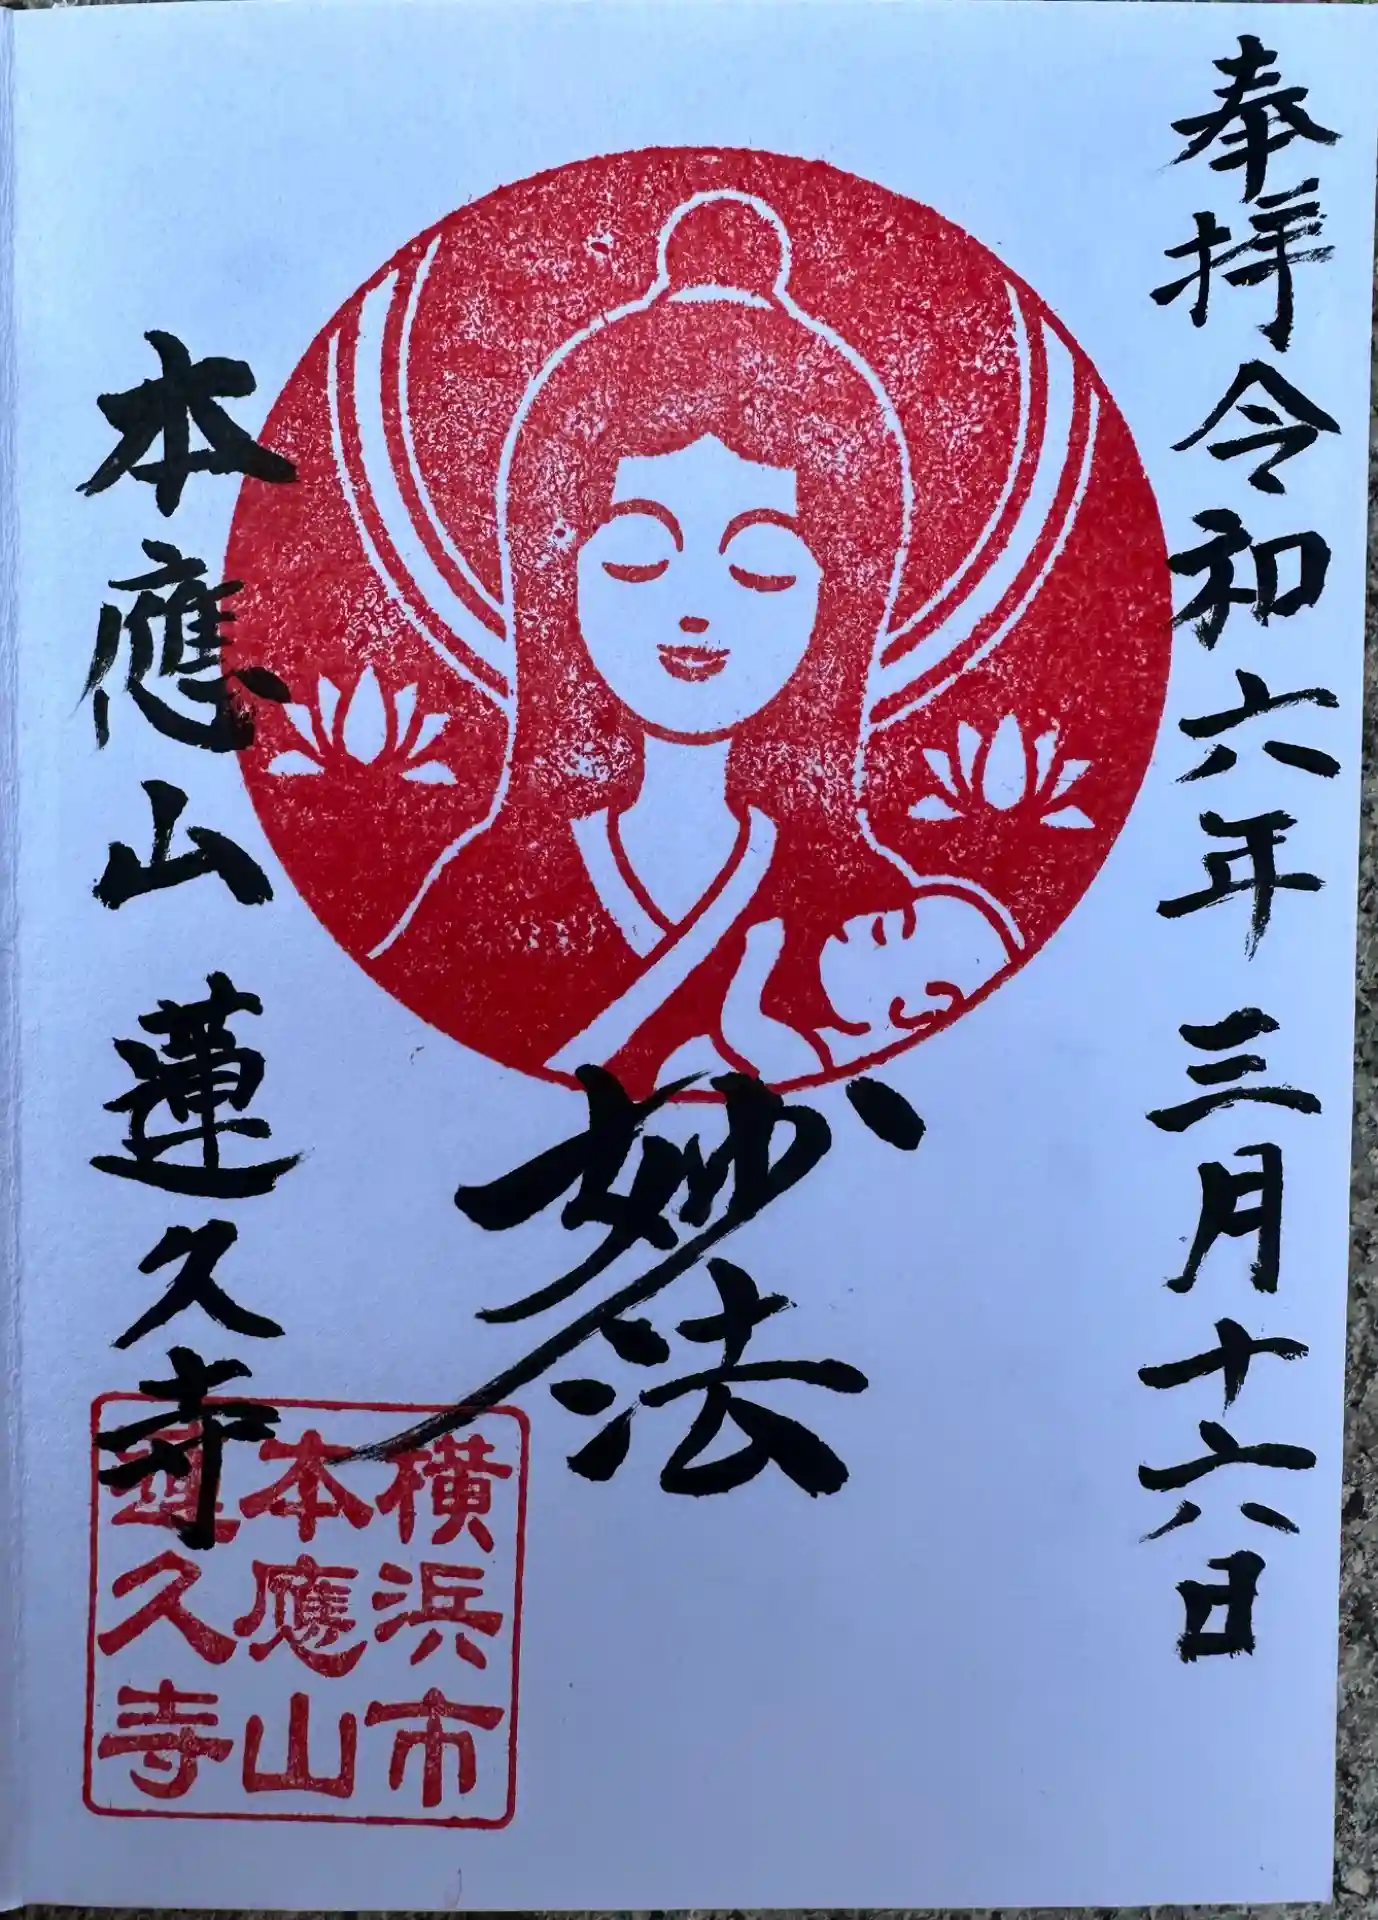 奉拝 令和六年 三月十六日
妙法
本應山 蓮久寺
横浜市
本應山
蓮久寺